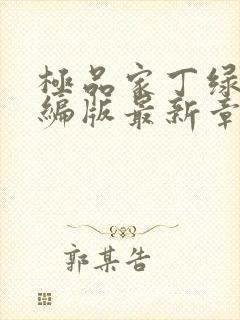 極品家丁绿
编版最新章
郭某告